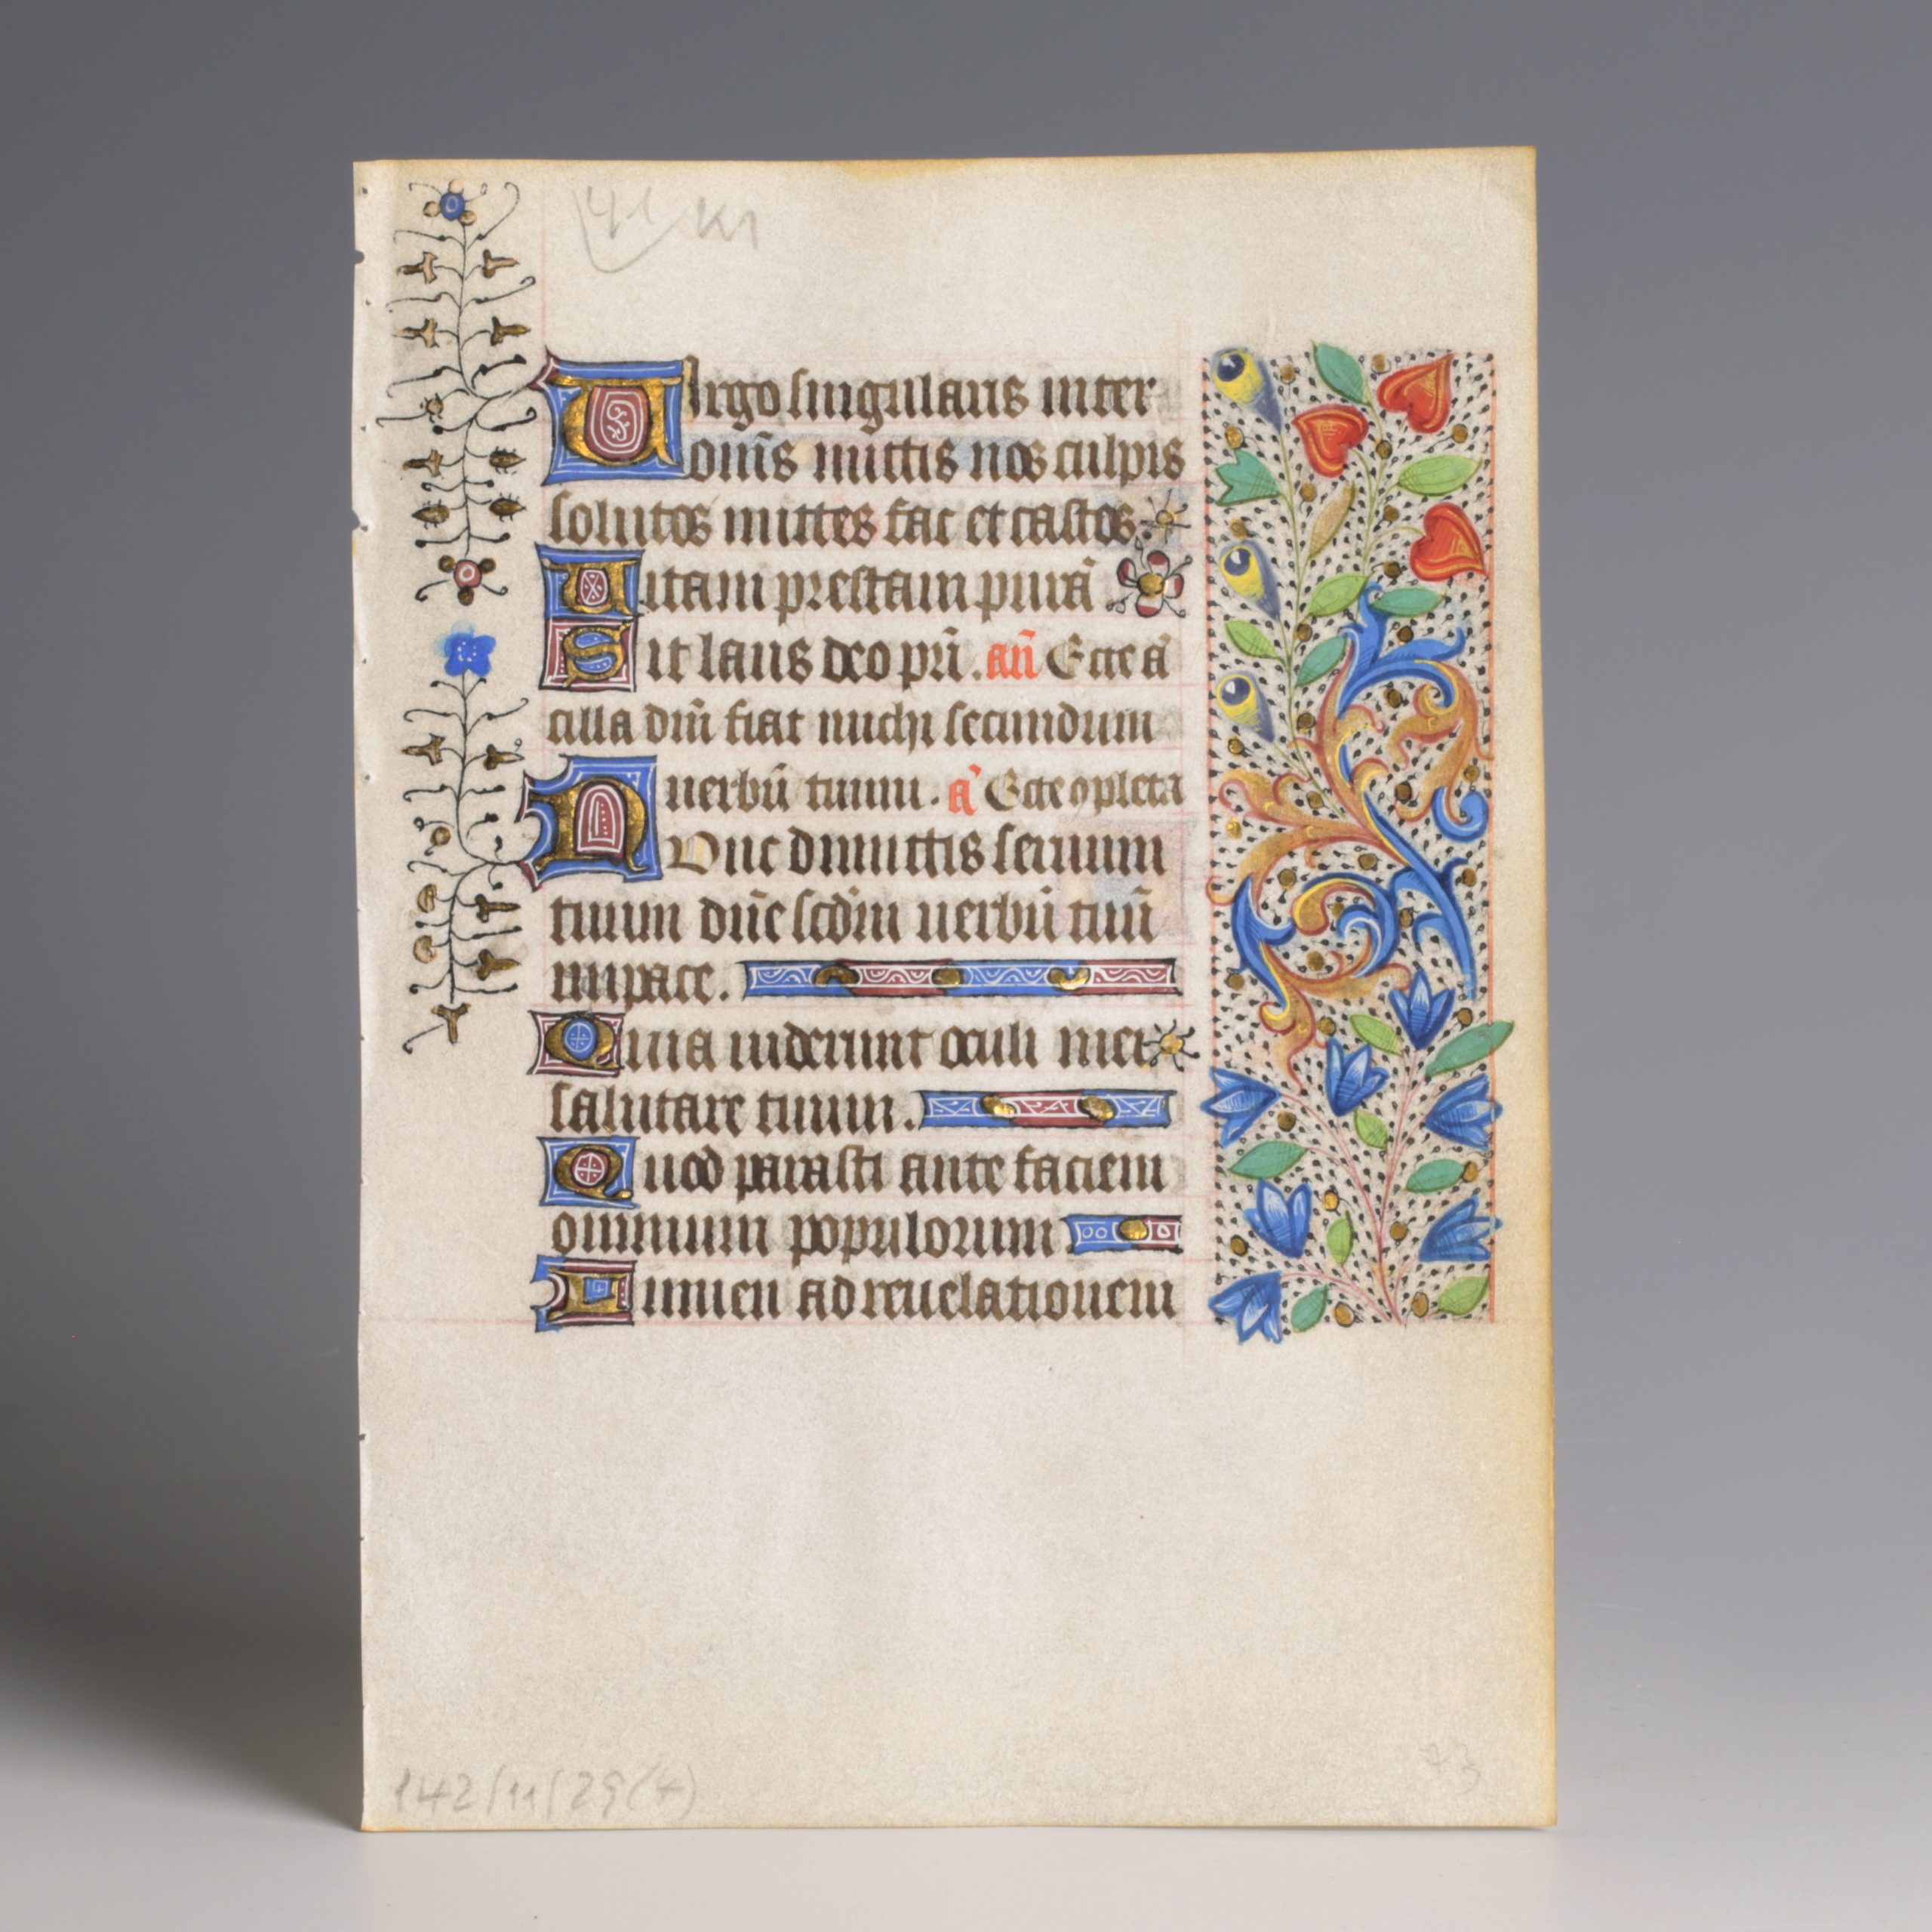 41 KM
Uirgo singularis inter
om̄s mittis nos culpis
solutos mittes fac et castos
Uitam prestam purā
Sit laus deo pr̄i. an̄ Ecce ā
cilla dn̄i fiat michi secundum
uerbū tuum. a᷑ Ecce opleta
Nunc dimittis seruum
tuum dn̄e scd̄m uerbū tuū
in pace.
Quia uiderunt oculi mei
salutare tuum.
Quod parasti ante faciem
omnium populorum
Lumen ad reuelationem
142/11/29(4)
73